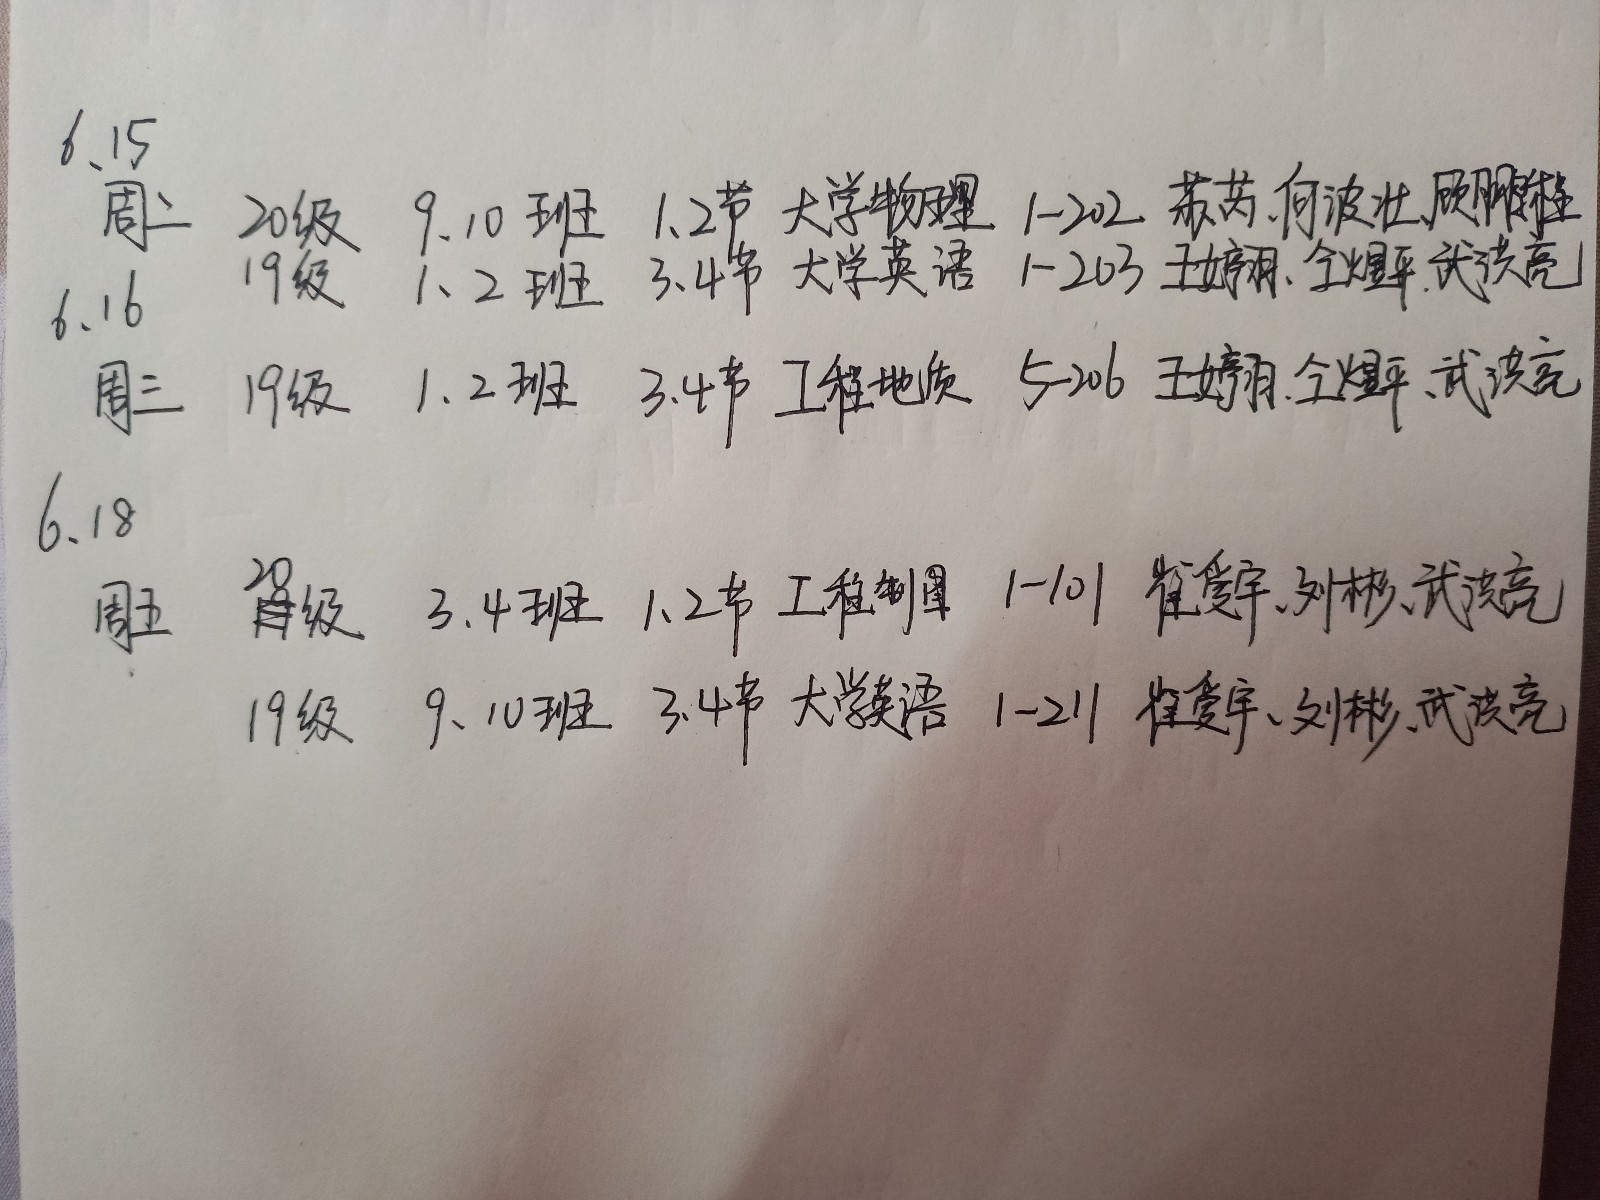 6.15
周二 20级 9.10班 1.2节 大学物理 1-202 苏芮、何波壮、顾
19级 1、2班 3.4节 大学英语 1-203 王婷羽、仝煜平、武洪亮
6.16
周三 19级 1.2班 3.4节 工程地质 5-206 王婷羽、仝煜平、武洪亮
6.18
周五 20级 3.4班 1.2节 工程制图 1-101 崔爱宇、刘彬、武洪亮
19级 9、10班 3.4节 大学英语 1-211 崔爱宇、刘彬、武洪亮